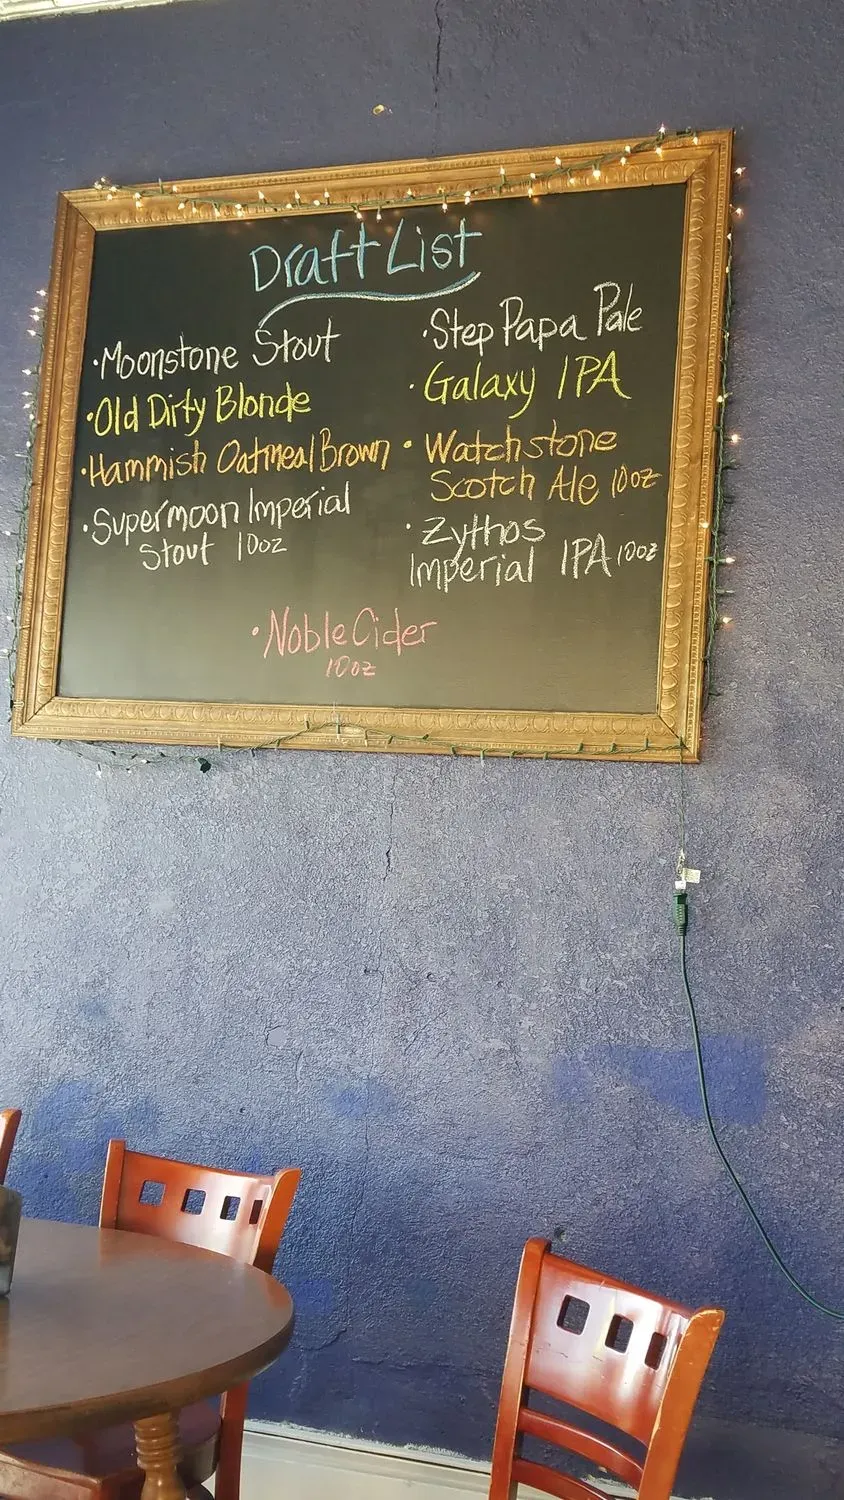 Draft List
·Moonstone Stout
·Old Dirty Blonde
·Hammish Oatmeal Brown
·Supermoon Imperial
Stout 10oz
·Step Papa Pale
·Galaxy IPA
·Watchstone
Scotch Ale 10oz
·Zythos
Imperial IPA 10oz
·Noble Cider
10oz